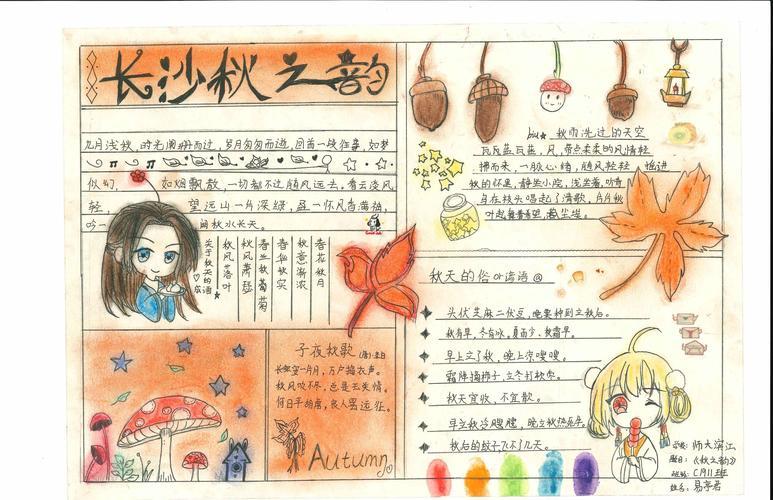 长沙秋之韵
九月浅秋，时光阑珊而过，岁月匆匆而逝，回首一段往事，如梦
似幻，如烟飘散，一切都不过随风远去，看云淡风
轻，望远山一片深绿，盈一怀风香满袖，
吟一阕秋水长天。
关于秋天的词
成
秋风落叶
秋风萧瑟
春兰秋菊
春华秋实
秋意渐浓
春花秋月
子夜秋歌(唐)李白
长安一片月，万户捣衣声。
秋风吹不尽，总是玉关情。
何日平胡虏，良人罢远征。
Autumn
秋雨洗过的天空
瓦瓦蓝瓦蓝，风，带点柔柔的风情轻
拂而来，一脉心绪，随风轻轻 摇进
秋的怀里，静坐小院，浅坐着，听
鸟在枝头唱起了清歌，片片秋
叶起舞
秋天的俗or谚语
头伏芝麻二伏豆，晚粟种到立秋后。
秋有旱，冬有冰。夏雨少，秋霜早。
早上立了秋，晚上凉嗖嗖。
霜降摘柿子，立冬打软枣。
秋天宜收，不宜散。
早立秋冷飕飕，晚立秋热死牛。
秋后的蚊子飞不了几天。
学校：师大滨江
题目：《秋之韵》
班级：C1911班
姓名：易亭君